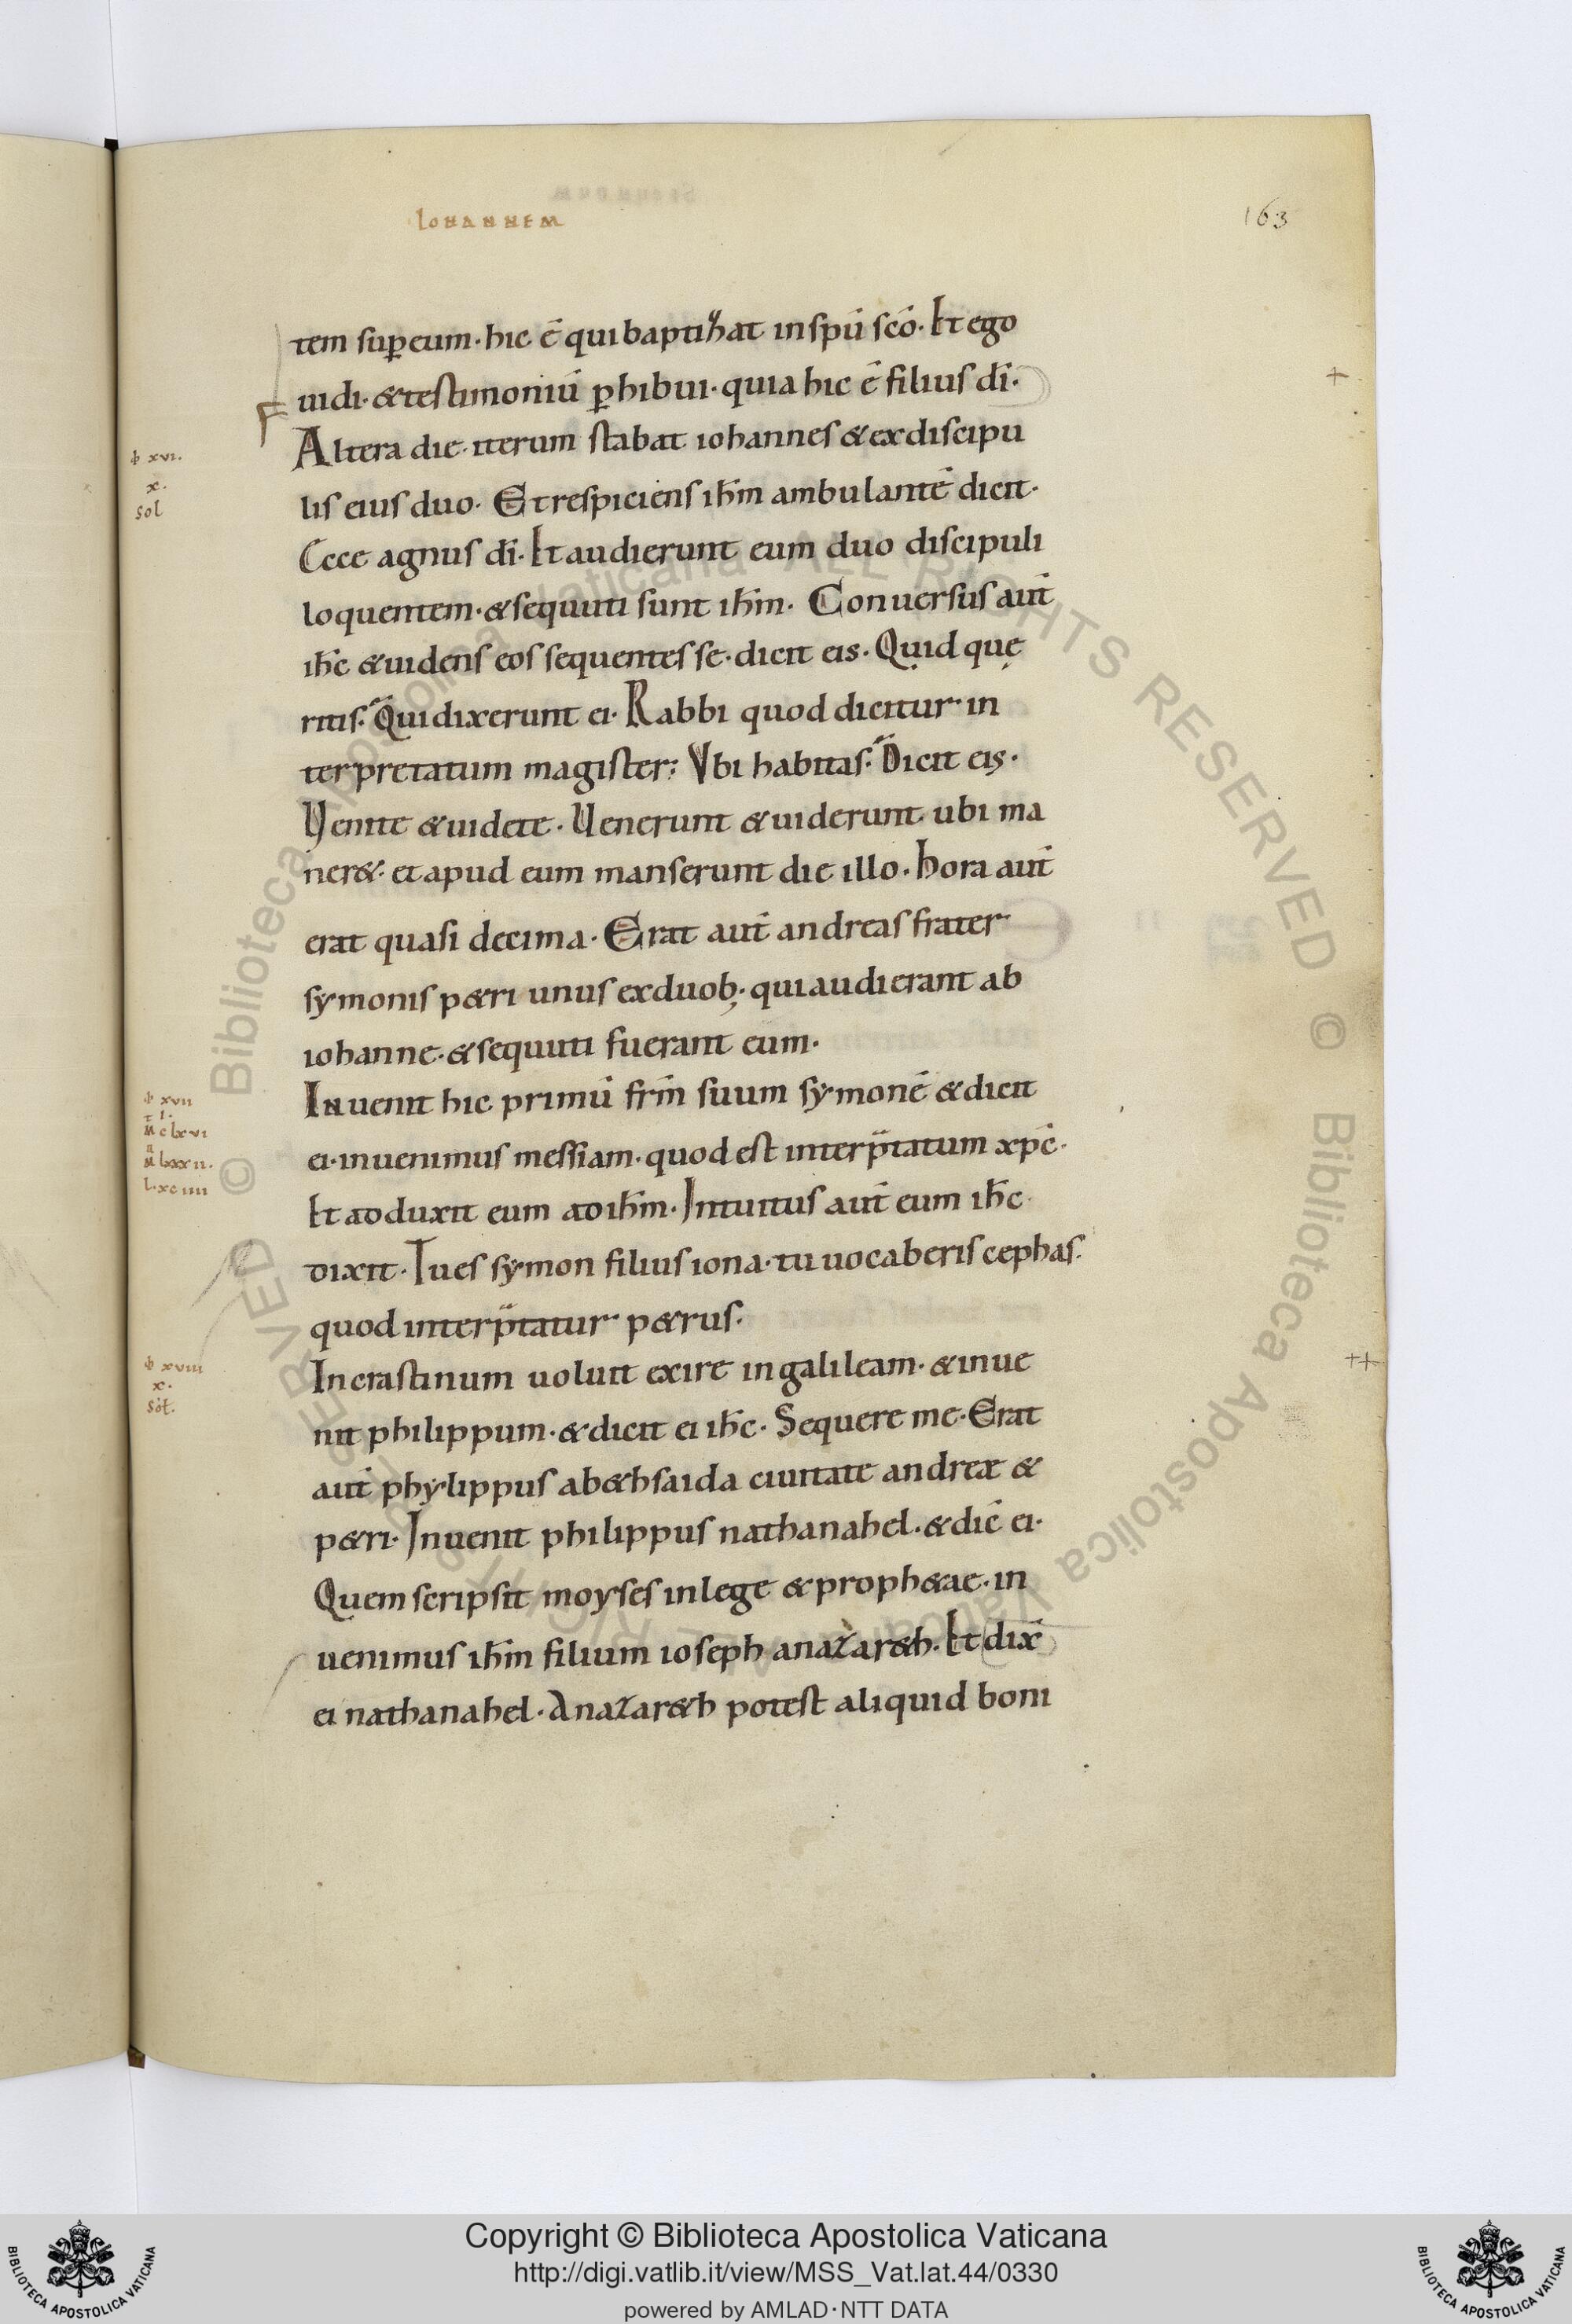 IOHANNEM
163
tem suꝑeum·hic ē quibaptizat inspū scō·Et ego
uidi·&testimoniū ꝑhibui·quia hic ē filius dī·
Altera die·iterum stabat iohannes &exdiscipu
lis eius duo· Et respiciens ihm̄ ambulantē dicit·
Ecce agnus dī·Et audierunt eum duo discipuli
loquentem·&sequuti sunt ihm̄· Conuersus aut̄
ihc̄ &uidens eos sequentes se·dicit eis·Quid quę
ritis·Qui dixerunt ei·Rabbi quod dicitur in
terpretatum magister; Vbi habitas·Dicit eis·
Uenite &uidete·Uenerunt &uiderunt ubi ma
ner&·et apud eum manserunt die illo·Hora aut̄
erat quasi decima·Erat aut̄ andreas frater
sẏmonis p&ri unus exduob;·qui audierant ab
iohanne·&sequuti fuerant eum·
Inuenit hic primū frm̄ suum sẏmonē &dicit
ei·inuenimus messiam·quod est interp̄tatum xpc̄·
Et adduxit eum ad ihm̄·Intuitus aut̄ eum ihc̄
dixit·Tu es sẏmon filius iona·tu uocaberis cephas·
quod interp̄tatur p&rus·
Incrastinum uoluit exire ingalileam·&inue
nit philippum·&dicit ei ihc̄·Sequere me·Erat
aut̄ phẏlippus ab&hsaida ciuitate andreæ &
p&ri·Inuenit philippus nathanahel·&dic̄ ei·
Quem scripsit moyses inlege &proph&ae·in
uenimus ihm̄ filium ioseph anazar&h·Et dix̄
ei nathanahel·Anazar&h potest aliquid boni
xvi·
x·
sol
xvii
i·
m̄ clxvi
lxxxii·
l·xciiii
xviii
x·
sol̄·
© Biblioteca Apostolica Vaticana ALL RIGHTS RESERVED
© Biblioteca Apostolica Vaticana ALL RIGHTS RESERVED
Copyright © Biblioteca Apostolica Vaticana
http://digi.vatlib.it/view/MSS_Vat.lat.44/0330
powered by AMLAD·NTT DATA
BIBLIOTECA APOSTOLICA VATICANA
BIBLIOTECA APOSTOLICA VATICANA